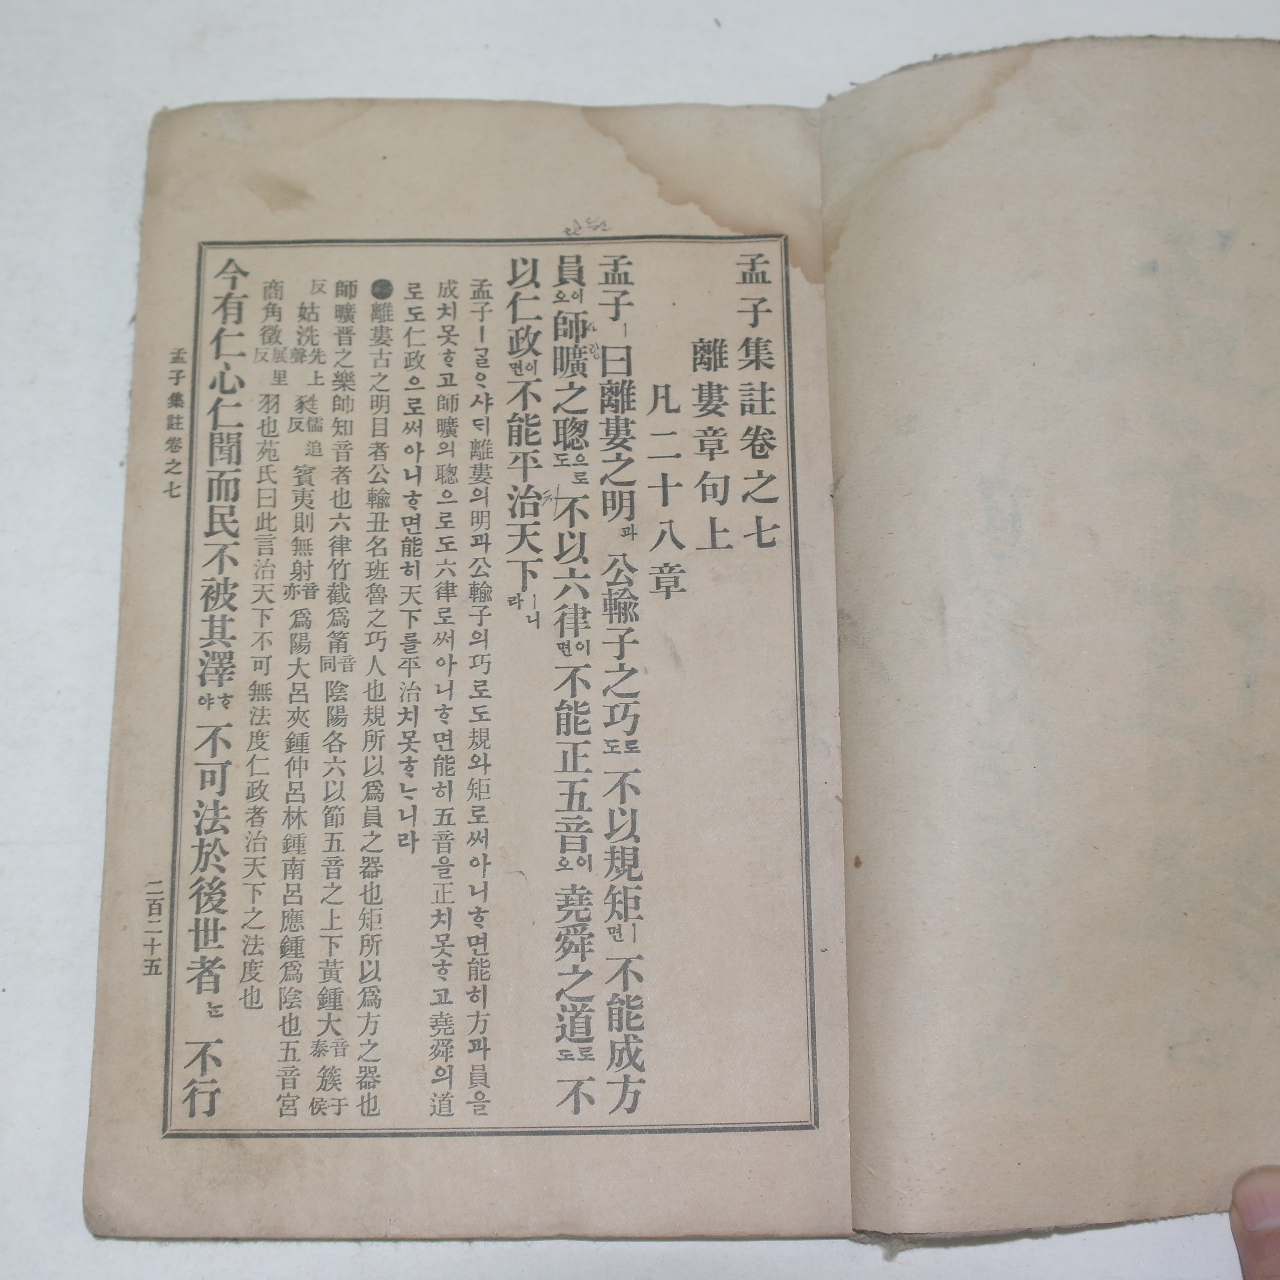 孟子集註卷之七
離婁章句上
凡二十八章
孟子ㅣ曰離婁之明과公輸子之巧로도不以規矩ㅣ면不能成方
員이오師曠之聰으로도不以六律이면不能正五音이오堯舜之道로도不
以仁政이면不能平治天下ㅣ니라
孟子ㅣᄀᆞᆯᄋᆞ샤ᄃᆡ離婁의明과公輸子의巧로도規와矩로써아니ᄒᆞ면能히方과員을
成치못ᄒᆞ고師曠의聰으로도六律로써아니ᄒᆞ면能히五音을正치못ᄒᆞ고堯舜의道
로도仁政으로써아니ᄒᆞ면能히天下를平治치못ᄒᆞᄂᆞ니라
離婁古之明目者公輸丑名班魯之巧人也規所以爲員之器也矩所以爲方之器也
師曠晋之樂師知音者也六律竹截爲筩音同陰陽各六以節五音之上下黃鍾大音泰簇于候
反姑洗先上聲㽔儒追反賓夷則無射音亦爲陽大呂夾鍾仲呂林鍾南呂應鍾爲陰也五音宮
商角徵展里反羽也范氏曰此言治天下不可無法度仁政者治天下之法度也
今有仁心仁聞而民不被其澤ᄒᆞ야不可法於後世者ᄂᆞᆫ不行
孟子集註卷之七
二百二十五